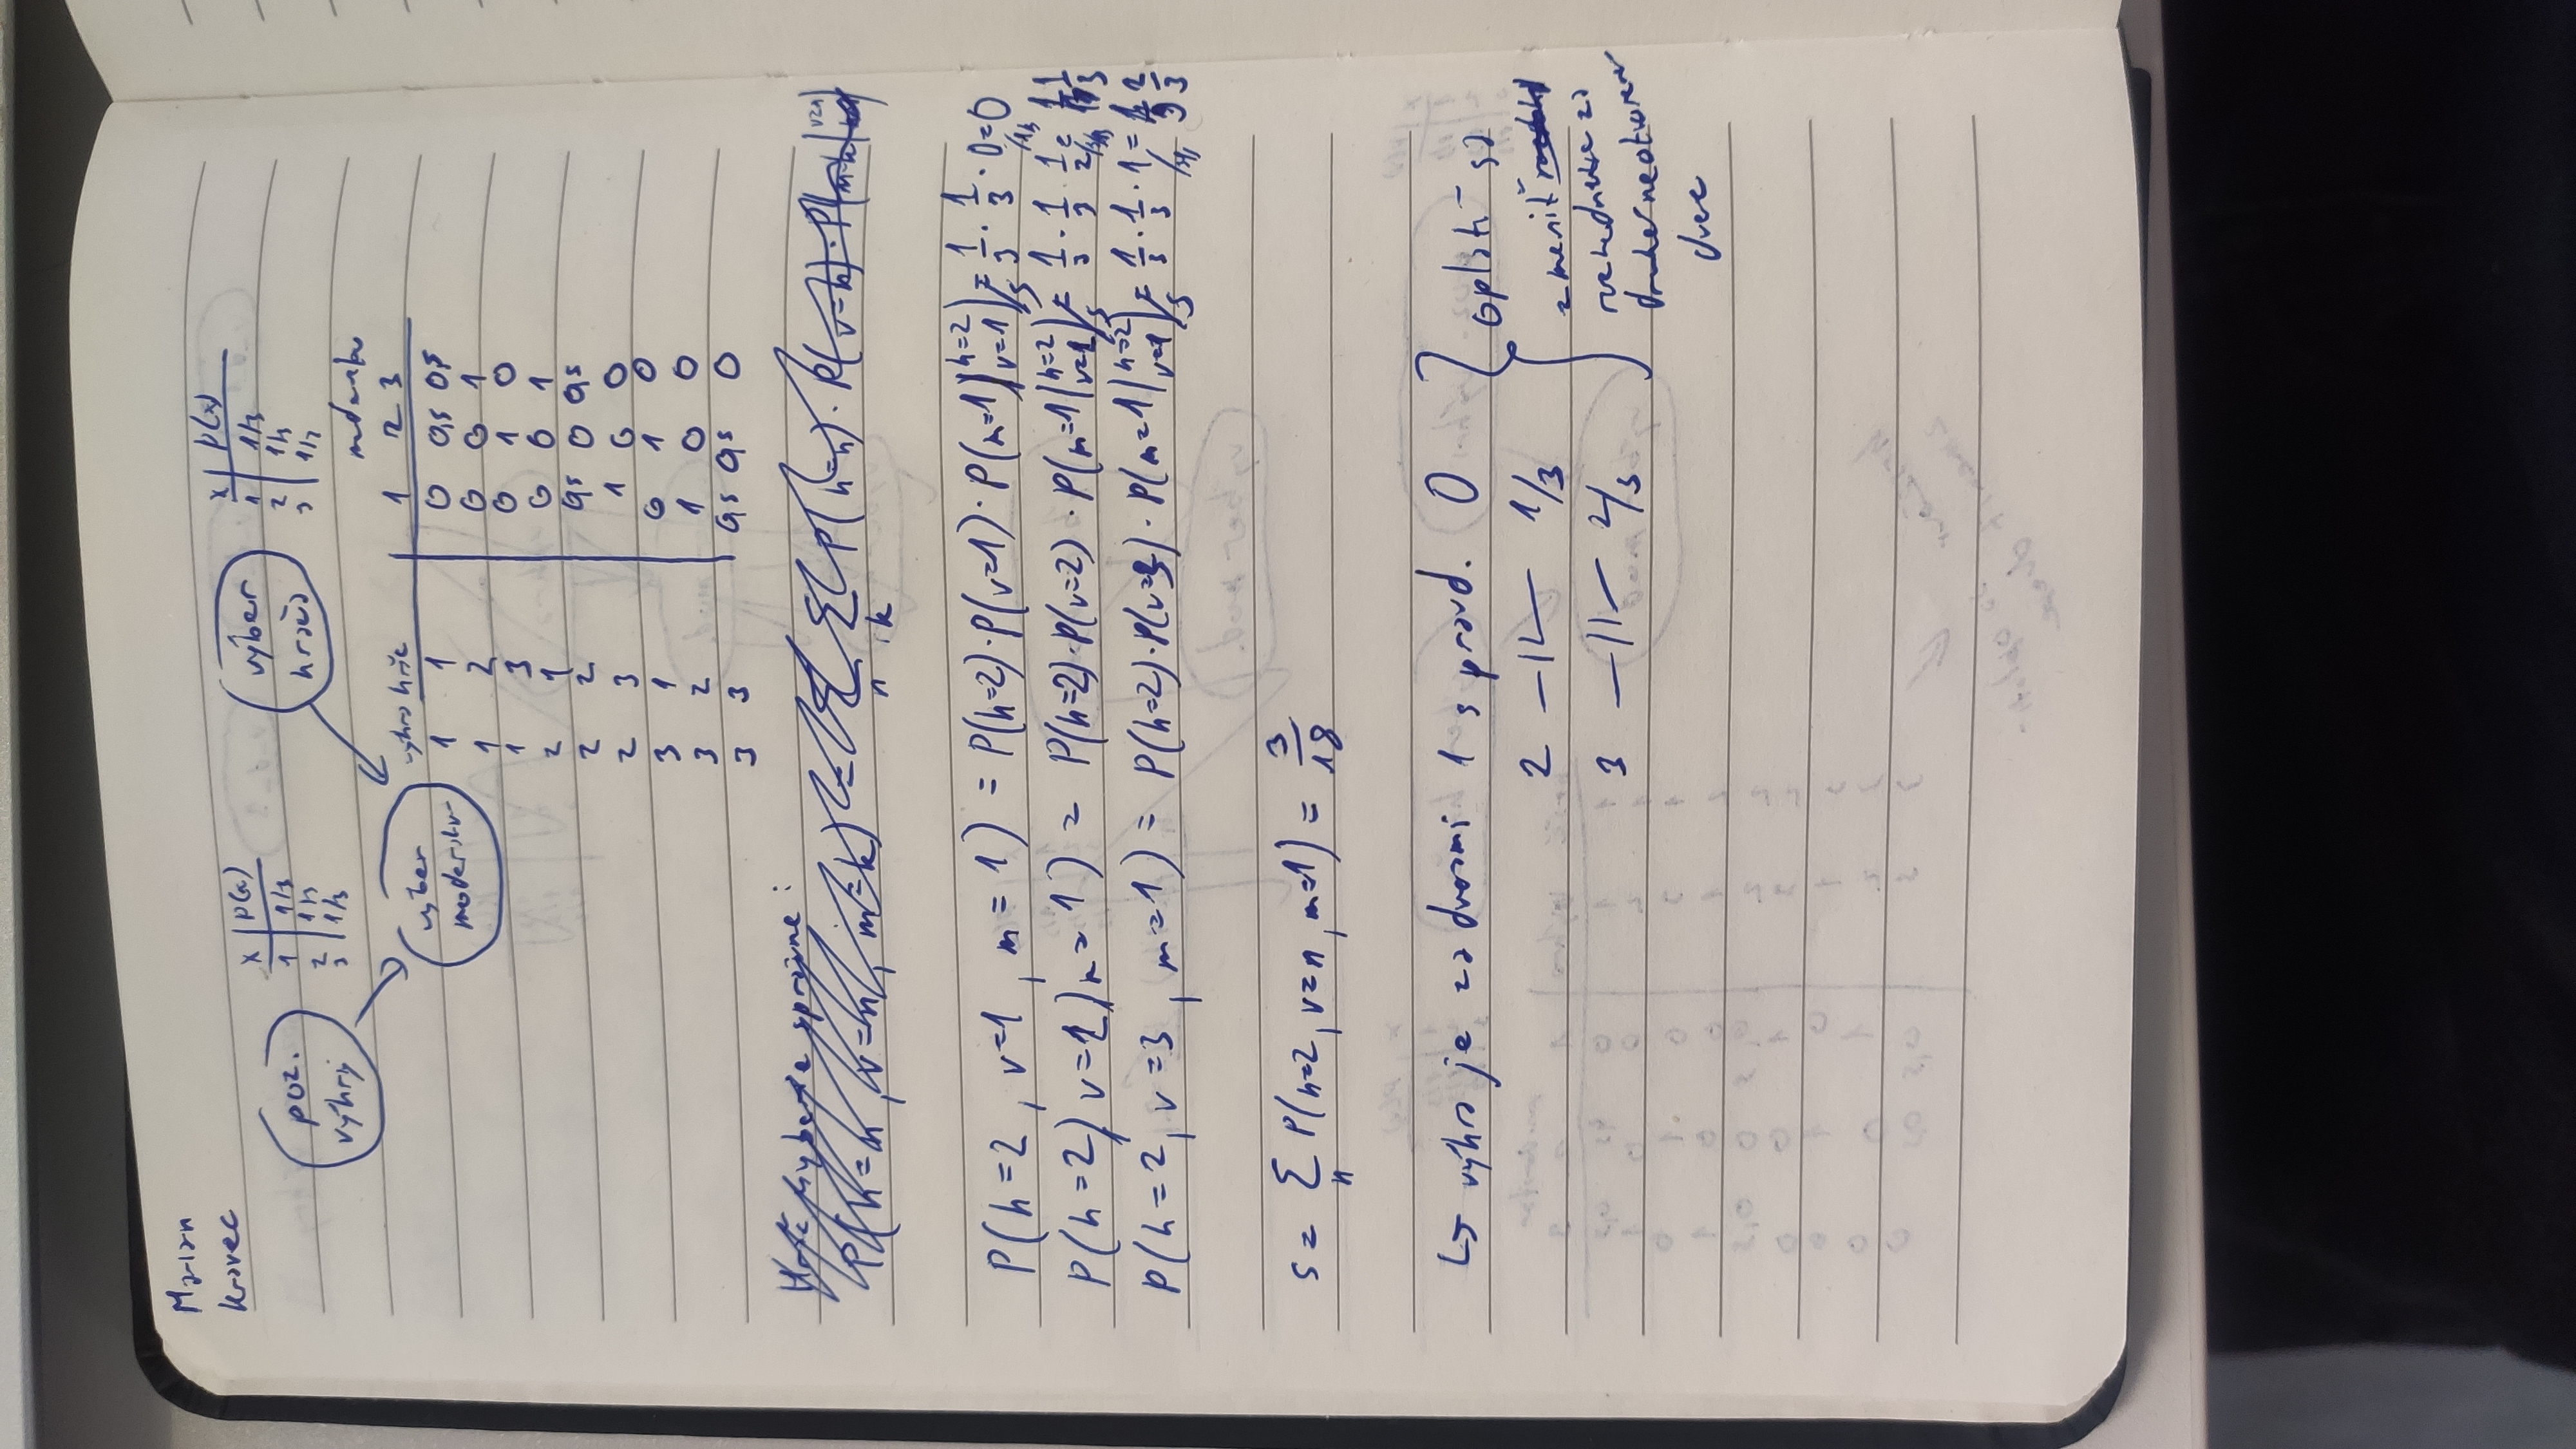 Marian
Kravec
poz.
výhry
x | P(x)
1 | 1/3
2 | 1/3
3 | 1/3
výber
hráča
x | P(x)
1 | 1/3
2 | 1/3
3 | 1/3
výber
moderátor
výhra hráč
1 2 3
1 1 | 0 0,5 0,5
1 2 | 0 0 1
1 3 | 0 1 0
2 1 | 0 0 1
2 2 | 0,5 0 0,5
2 3 | 1 0 0
3 1 | 0 1 0
3 2 | 1 0 0
3 3 | 0,5 0,5 0
P(h=2, v=1, m=1) = P(h=2)·P(v=1)·P(m=1|h=2 v=1)/s = 1/3 · 1/3 · 0 = 0
P(h=2, v=2, m=1) = P(h=2)·P(v=2)·P(m=1|h=2 )/s = 1/3 · 1/3 · 1/2 = 1/3
P(h=2, v=3, m=1) = P(h=2)·P(v=3)·P(m=1|h=2 v=1)/s = 1/3 · 1/3 · 1 = 2/3
s = Σn P(h=2, v=n, m=1) = 3/18
↳ výhra je za dverami 1 s pravd. 0
2 —||— 1/3
3 —||— 2/3
oplatí sa
zmeniť
za
neotvorené
dvere